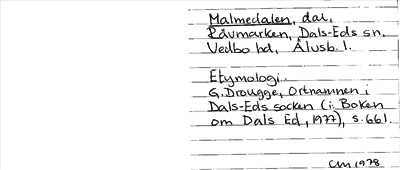 Malmedalen, dal,
Råvmarken, Dals-Eds sn,
Vedbo hd, Älvsb. l.
Etymologi:
G. Drougge, Ortnamnen i
Dals-Eds socken (i: Boken
om Dals Ed, 1977), s. 661.
CM 1978